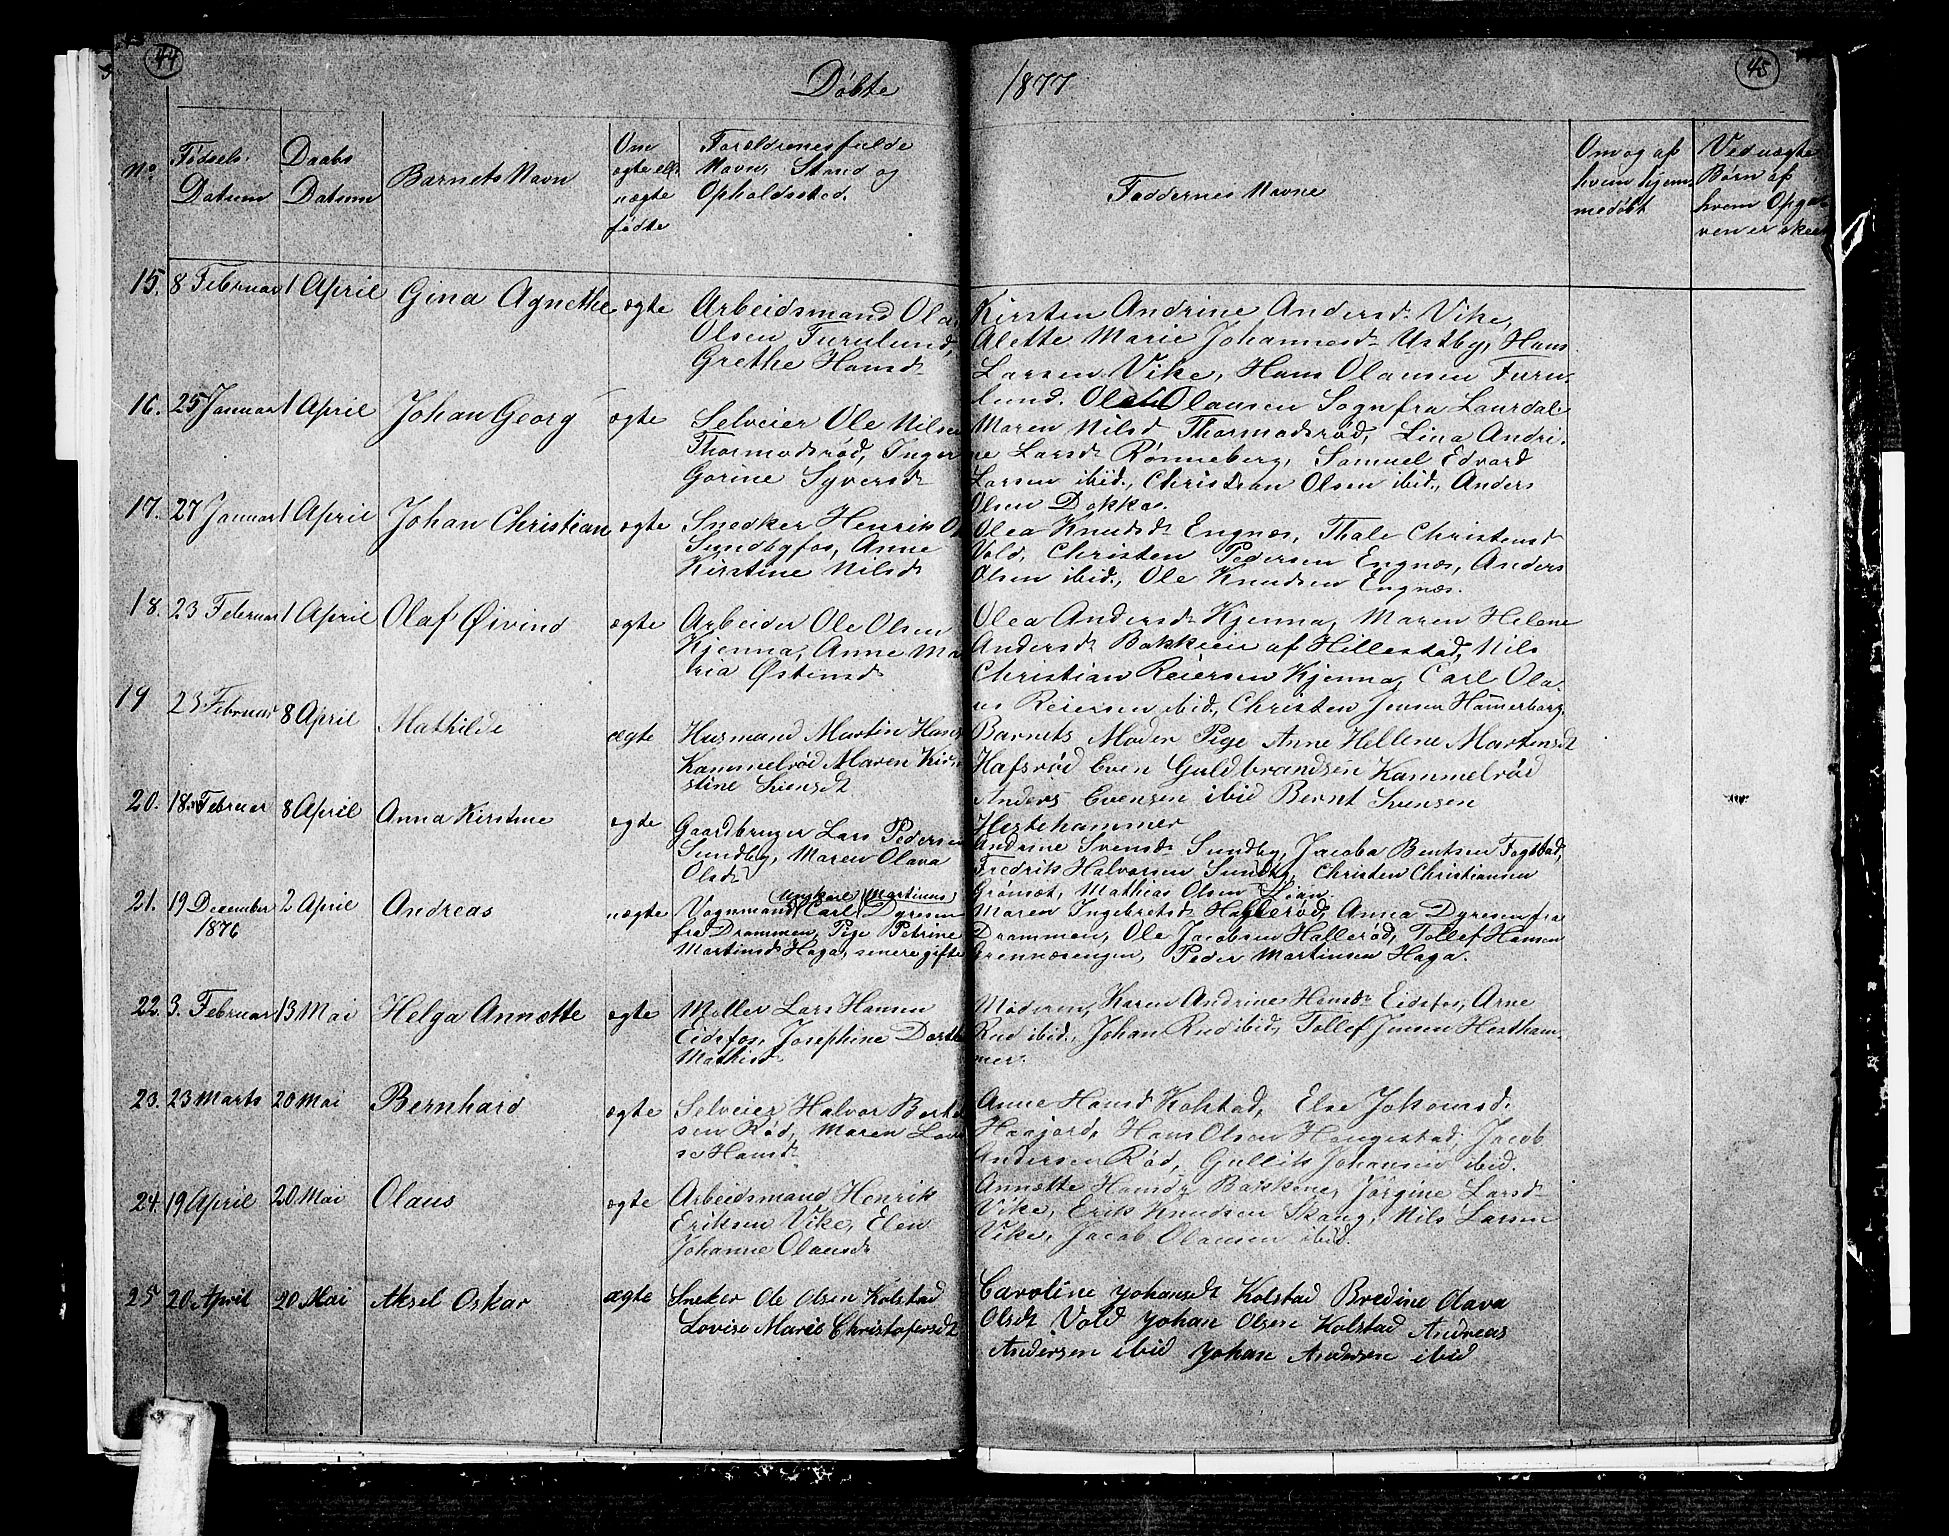 44
45
Døbte 1877
No.
Fødsels-
Datum
Daabs
Datum
Barnets Navn
Om
ægte ell.
uægte
fødte
Forældrenes fulde
Navn, Stand og
Opholdssted.
Faddernes Navne
Om og af
hvem hjem-
medøbt
Ved uægte
Børn af
hvem Opga-
ven er skeet
15. 8 Februar 1 April Gina Agnethe ægte
Arbeidsmand Ola
Olsen Furulund,
Grethe Hansd
Kirsten Andrine Andersd Vike,
Alette Marie Johannesd Ustby, Hans
Larsen Vike, Hans Olausen Furu-
lund. Olausen Sogn fra Laurdal.
16. 25 Januar 1 April Johan Georg ægte
Selveier Ole Nilsen
Thormodsrød, Inger
Gorine Syversd
Maren Nilsd Thormodsrød, Lina Andri-
ne Larsd Rønneberg, Samuel Edvard
Larsen ibid., Christian Olsen ibid., Anders
Olsen Dokka.
17. 27 Januar 1 April Johan Christian ægte
Snedker Henrik O
Sundbyfos, Anne
Kirstine Nilsd
Olea Knudsd Engnæs, Thale Christensd
Vold, Christen Pedersen Engnæs, Anders
Olsen ibid., Ole Knudsen Engnæs.
18. 23 Februar 1 April Olaf Øivind ægte
Arbeider Ole Olsen
Kjenna, Anne Ma
ria Østensd
Olea Andersd Kjenna, Maren Helene
Andersd Bakkeie af Hillestad, Nils
Christian Reiersen Kjenna, Carl Ola-
us Reiersen ibid., Christen Jensen Hammerberg.
19 23 Februar 8 April Mathilde ægte
Husmand Martin Hans
Kammelrød Maren Kir-
stine Svensdt
Barnets Moder Pige Anne Hellene Martensdt
Hafsrød Even Guldbrandsen Kammelrød
Anders Evensen ibid Bernt Svensen
Hestehammer
20. 18 Februar 8 April Anna Kirstine ægte
Gaardbruger Lars Pedersen
Sundby, Maren Olava
Olsdt
Andrine Svensd Sundby, Jacoba Bentsen Fogstad,
Fredrik Halvorsen Sundby, Christen Christiansen
Grønsæt, Mathias Olsen Skjan.
21. 19 December 2 April Andreas uægte
1876
(Ungkarl) (Martinus)
Vognmand Carl Dyresen
fra Drammen, Pige Petrine
Martinsd Haga, senere gifte
Maren Ingebretsd Hallerød, Anna Dyresen fra
Drammen, Ole Jacobsen Hallerød, Tollef Hansen
Grennæsengen, Peder Martinsen Haga.
22. 3. Februar 13 Mai Helga Annette ægte
Møller Lars Hansen
Eidsfos, Josephine Dorthe
Mathisd
Moderen, Karen Andrine Hansd Eidsfos, Arne
Rud ibid., Johan Rud ibid., Tollef Jensen Hestham-
mer.
23. 23 Marts 20 Mai Bernhard ægte
Selveier Halvor Bert
sen Rød, Maren Lovi
se Hansd
Anne Hansd Kolstad, Else Johansd.
Haajord, Hans Olsen Haugestad, Jacob
Andersen Rød, Gullik Johansen ibid.
24. 19 April 20 Mai Olaus ægte
Arbeidsmand Henrik
Eriksen Vike, Elen
Johanne Olausd
Annette Hansd Bakkene, Jørgine Larsd
Vike, Erik Knudsen Skaug, Nils Larsen
Vike, Jacob Olausen ibid.
25 20 April 20 Mai Aksel Oskar ægte
Sneker Ole Olsen Kolstad
Lovise Marie Christofersdt
Caroline Johansdt Kolstad Bredine Olava
Olsdt Vold Johan Olsen Kolstad Andreas
Andersen ibid Johan Andersen ibid